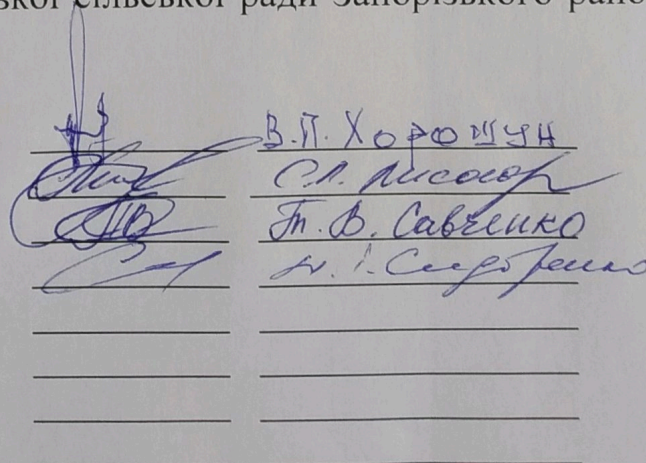 сільської ради Запорізького
В.П. Хорошун
С.П. Лисогор
Т.В. Савченко
Сидоренко